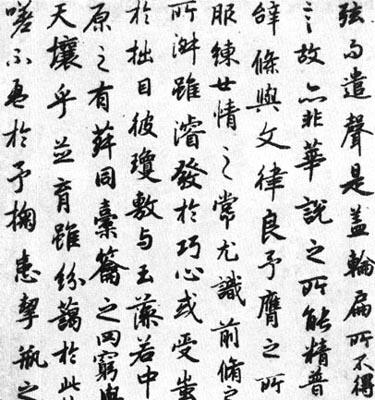 弦而遣聲是蓋輪扁所不得
言故亦非華說之所能精普
辭條與文律良予膺之所
服練世情之常尤識前脩之
所淑雖濬發於巧心或受蚩
於拙目彼瓊敷与玉藻若中
原之有菽同橐籥之罔窮與
天壤乎並育雖紛藹於此
嗟不盈於予掬患挈瓶之